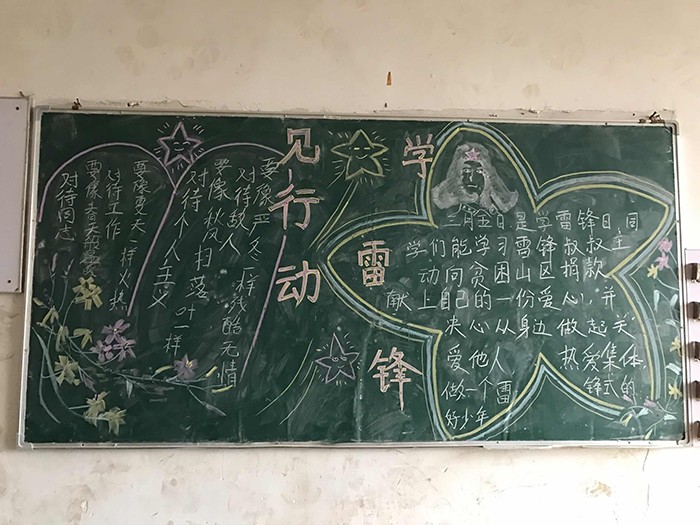 学雷锋
见行动
对待同志
要像春天般温暖
对待工作
要像夏天一样火热
对待个人主义
要像秋风扫落叶一样
对待敌人
要像严冬一样残酷无情
三月五日是学雷锋日,同
学们能学习雷锋叔叔,主
动向贫困山区捐款
献上自己的一份爱心,并
决心从身边做起关
爱他人 热爱集体
做一个雷锋式的
好少年